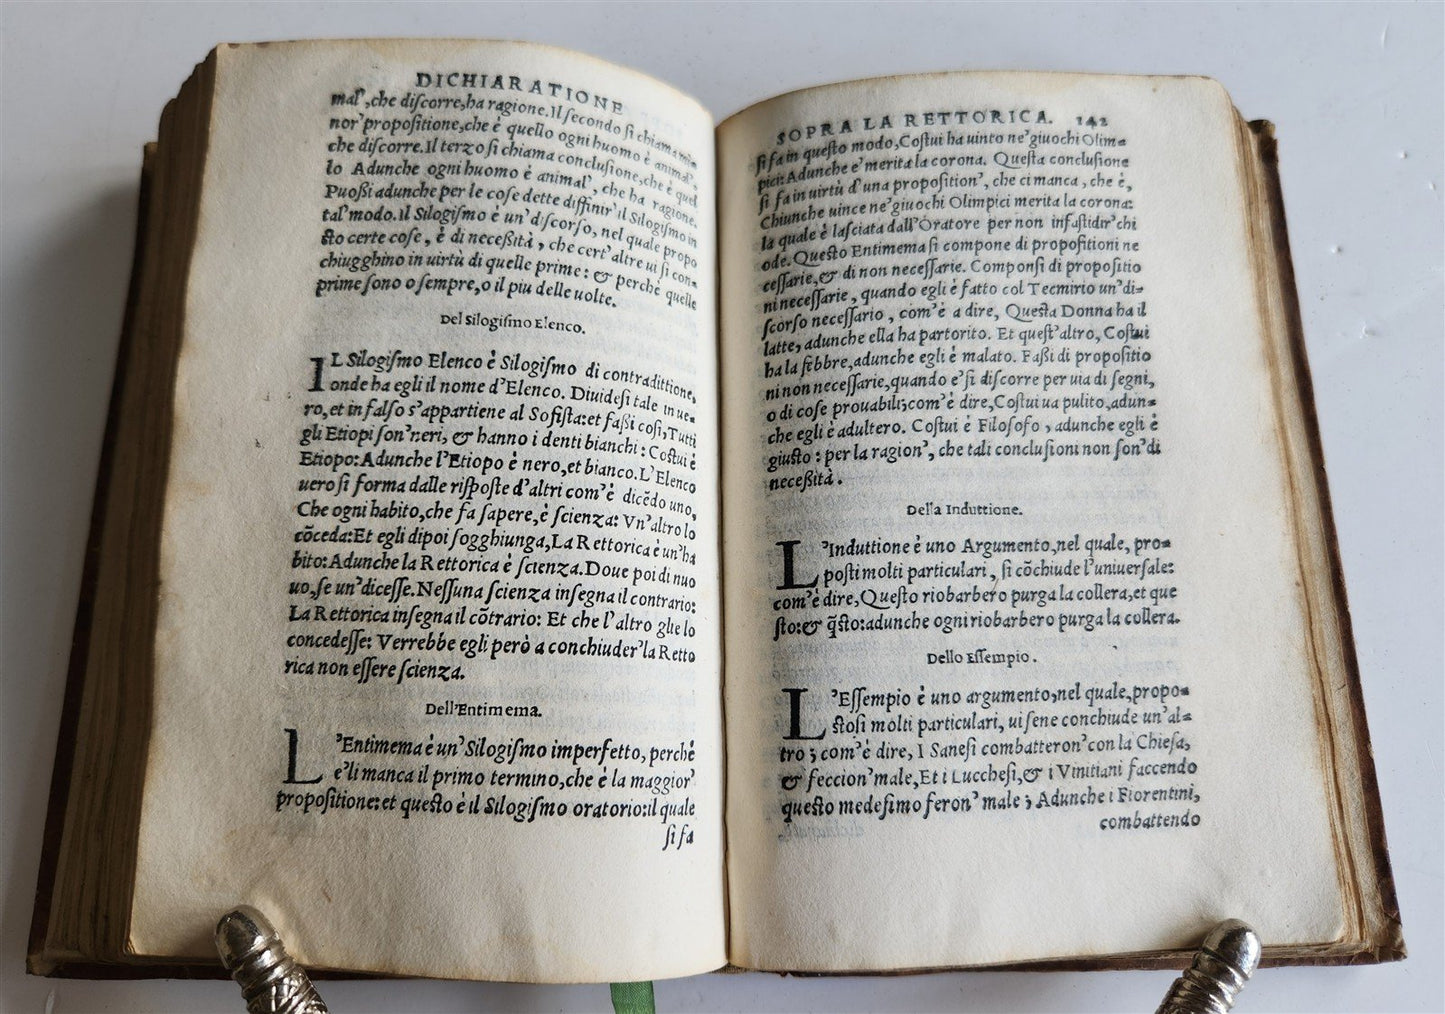 DICHIARATIONE
mal', che discorre, ha ragione. Il secondo si chiama mi-
nor' propositione, che è quello ogni huomo è animal',
che discorre. Il terzo si chiama conclusione, che è quel
lo Adunche ogni huomo è animal', che ha ragione.
Puossi adunche per le cose dette diffinir' il Silogismo in
tal' modo. il Silogismo è un' discorso, nel quale propo
sto certe cose, è di necessità, che cert' altre ui si con-
chiugghino in uirtù di quelle prime: & perche quelle
prime sono o sempre, o il piu delle uolte.
Del Silogismo Elenco.
IL Silogismo Elenco è Silogismo di contradittione,
onde ha egli il nome d'Elenco. Diuidesi tale in ue-
ro, et in falso s'appartiene al Sofista: et fassi cosi, Tutti
gli Etiopi son' neri, & hanno i denti bianchi: Costui è
Etiopo: Adunche l'Etiopo è nero, et bianco. L'Elenco
uero si forma dalle risposte d'altri com' è dicẽdo uno,
Che ogni habito, che fa sapere, è scienza: Vn' altro lo
cõceda: Et egli dipoi sogghiunga, La Rettorica è un' ha
bito: Adunche la Rettorica è scienza. Doue poi di nuo
uo, se un' dicesse. Nessuna scienza insegna il contrario:
La Rettorica insegna il cõtrario: Et che l'altro glie lo
concedesse: Verrebbe egli però a conchiuder' la Retto
rica non essere scienza.
Dell'Entimema.
L'Entimema è un' Silogismo imperfetto, perché
e'li manca il primo termino, che è la maggior'
propositione: et questo è il Silogismo oratorio: il quale
si fa
SOPRA LA RETTORICA. 142
si fa in questo modo, Costui ha uinto ne' giuochi Olim-
pici: Adunche e' merita la corona. Questa conclusione
si fa in uirtù d'una proposition', che ci manca, che è,
Chiunche uince ne' giuochi Olimpici merita la corona:
la quale è lasciata dall'Oratore per non infastidir' chi
ode. Questo Entimema si compone di propositioni ne
cessarie, & di non necessarie. Componsi di propositio
ni necessarie, quando egli è fatto col Tecmirio un' di-
scorso necessario, com' è a dire, Questa Donna ha il
latte, adunche ella ha partorito. Et quest' altro, Costui
ha la febbre, adunche egli è malato. Fassi di propositio
ni non necessarie, quando e' si discorre per uia di segni,
o di cose prouabili; com' è dire, Costui ua pulito, adun-
che egli è adultero. Costui è Filosofo, adunche egli è
giusto: per la ragion', che tali conclusioni non son' di
necessità.
Della Induttione.
L'Induttione è uno Argumento, nel quale, pro-
posti molti particulari, si cõchiude l'uniuersale:
com' è dire, Questo riobarbero purga la collera, et que
sto: & q̃sto: adunche ogni riobarbero purga la collera.
Dello Essempio.
L'Essempio è uno argumento, nel quale, propo-
stosi molti particulari, ui sene conchiude un' al-
tro; com' è dire, I Sanesi combatteron' con la Chiesa,
& feccion' male, Et i Lucchesi, & i Vinitiani faccendo
questo medesimo feron' male; Adunche i Fiorentini,
combattendo